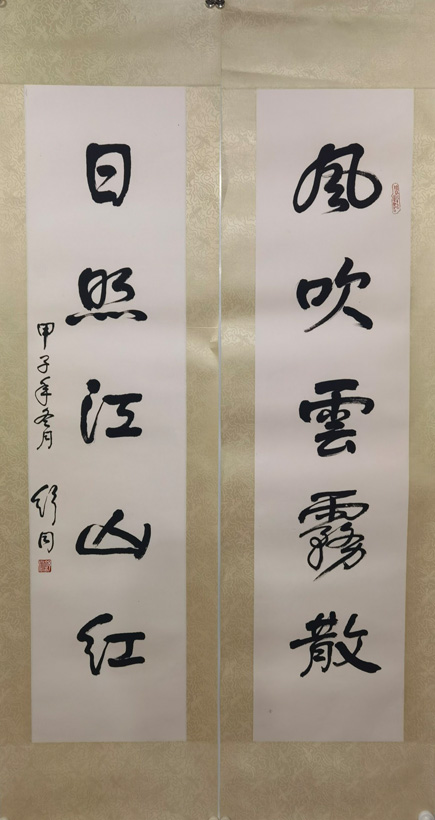 風吹雲霧散
日照江山紅
甲子年冬月
舒同